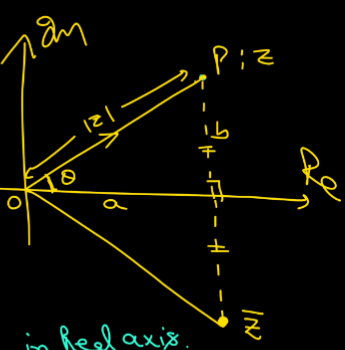 Im
P : z
|z|
b
Re
θ
O
a
z̅
in Real axis.